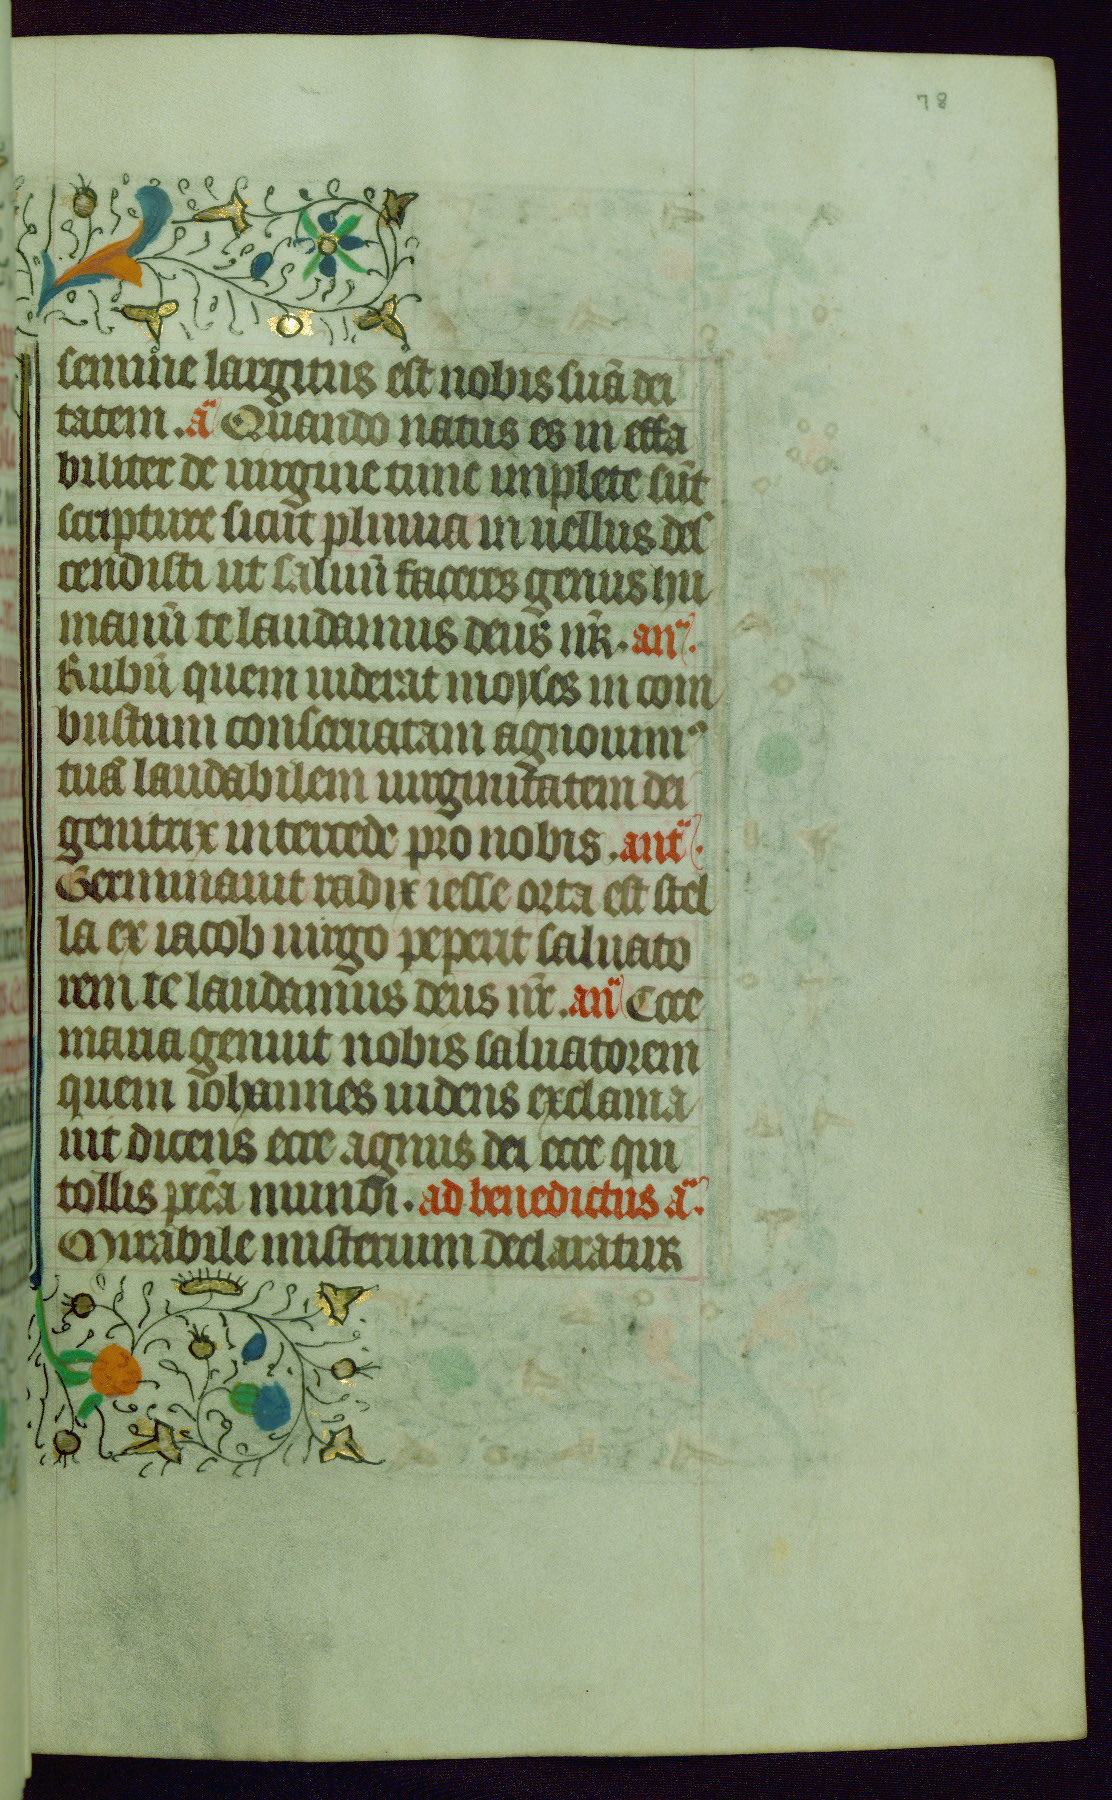 78
semine largitus est nobis suā dei
tatem . a͞ Quando natus es in effa
biliter de uirgine tunc implete sūt
scripture sicut pluuia in uellus des
cendisti ut saluū faceres genus hu
manū te laudamus deus nr̄ . an͞ .
Rubū quem uiderat moyses in com
bustum conseruatam agnouimꝰ
tuā laudabilem uirginitatem dei
genitrix intercede pro nobis . ant͞ .
Germinauit radix iesse orta est stel
la ex iacob uirgo peperit saluato
rem te laudamus deus nr̄ . an͞ Ecce
maria genuit nobis saluatorem
quem iohannes uidens exclama
uit dicens ecce agnus dei ecce qui
tollis pccā mundi . ad benedictus a͞ .
Mirabile misterium declaratur